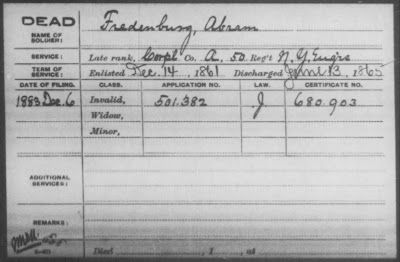 DEAD Fredenburg, Abram
NAME OF
SOLDIER:
SERVICE: Late rank, Corpl Co. A, 50 Reg't N.Y. Engrs
TERM OF
SERVICE: Enlisted Dec. 14, 1861 Discharged June 13, 1865
DATE OF FILING. CLASS. APPLICATION NO. LAW. CERTIFICATE NO.
1883 Dec. 6 Invalid, 501.382 J 680.903
Widow,
Minor,
ADDITIONAL
SERVICES:
REMARKS:
Died , 1 , at